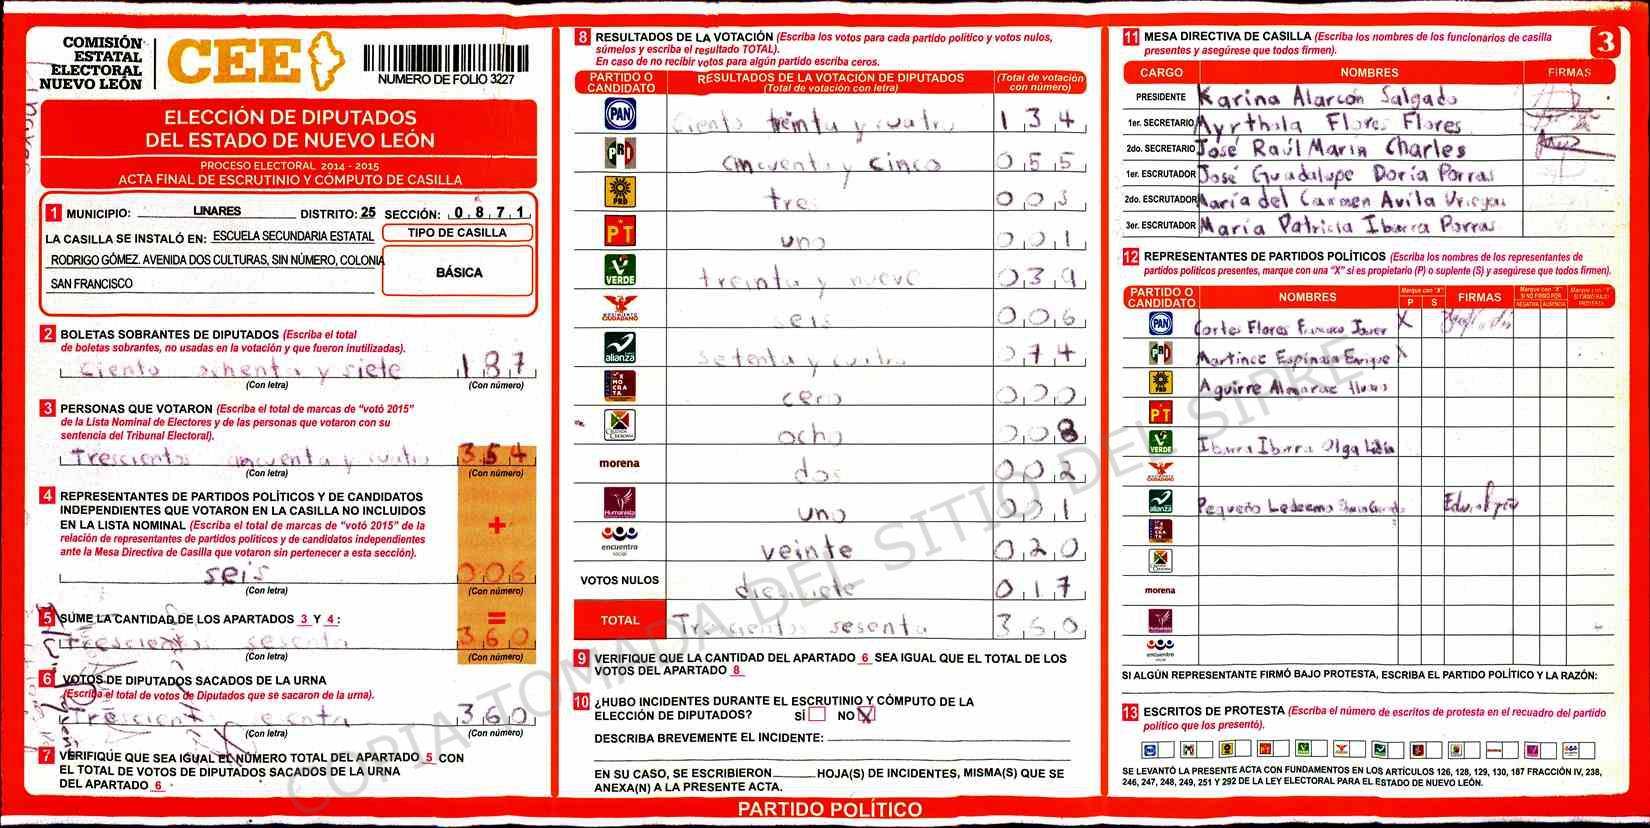 COMISIÓN
ESTATAL
ELECTORAL
NUEVO LEÓN
CEE
NUMERO DE FOLIO 3227
ELECCIÓN DE DIPUTADOS
DEL ESTADO DE NUEVO LEÓN
PROCESO ELECTORAL 2014 - 2015
ACTA FINAL DE ESCRUTINIO Y CÓMPUTO DE CASILLA
1 MUNICIPIO: LINARES DISTRITO: 25 SECCIÓN: 0 8 7 1
LA CASILLA SE INSTALÓ EN: ESCUELA SECUNDARIA ESTATAL
RODRIGO GÓMEZ. AVENIDA DOS CULTURAS, SIN NÚMERO, COLONIA
SAN FRANCISCO
TIPO DE CASILLA
BÁSICA
2 BOLETAS SOBRANTES DE DIPUTADOS (Escriba el total
de boletas sobrantes, no usadas en la votación y que fueron inutilizadas).
Ciento ochenta y siete 1 8 7
(Con letra) (Con número)
3 PERSONAS QUE VOTARON (Escriba el total de marcas de "votó 2015"
de la Lista Nominal de Electores y de las personas que votaron con su
sentencia del Tribunal Electoral).
Trescientos cincuenta y cuatro 3 5 4
(Con letra) (Con número)
4 REPRESENTANTES DE PARTIDOS POLÍTICOS Y DE CANDIDATOS
INDEPENDIENTES QUE VOTARON EN LA CASILLA NO INCLUIDOS
EN LA LISTA NOMINAL (Escriba el total de marcas de "votó 2015" de la
relación de representantes de partidos políticos y de candidatos independientes
ante la Mesa Directiva de Casilla que votaron sin pertenecer a esta sección).
+
seis 0 0 6
(Con letra) (Con número)
5 SUME LA CANTIDAD DE LOS APARTADOS 3 Y 4: =
Trescientos sesenta 3 6 0
(Con letra) (Con número)
6 VOTOS DE DIPUTADOS SACADOS DE LA URNA
(Escriba el total de votos de Diputados que se sacaron de la urna).
Trescientos sesenta 3 6 0
(Con letra) (Con número)
7 VERIFIQUE QUE SEA IGUAL EL NÚMERO TOTAL DEL APARTADO 5 CON
EL TOTAL DE VOTOS DE DIPUTADOS SACADOS DE LA URNA
DEL APARTADO 6
8 RESULTADOS DE LA VOTACIÓN (Escriba los votos para cada partido político y votos nulos,
súmelos y escriba el resultado TOTAL).
En caso de no recibir votos para algún partido escriba ceros.
PARTIDO O CANDIDATO RESULTADOS DE LA VOTACIÓN DE DIPUTADOS (Total de votación con letra) (Total de votación con número)
PAN Ciento treinta y cuatro 1 3 4
PRD cincuenta y cinco 0 5 5
PRD tres 0 0 3
PT uno 0 0 1
VERDE treinta y nueve 0 3 9
MOVIMIENTO CIUDADANO seis 0 0 6
alianza setenta y cuatro 0 7 4
DEMOCRATA cero 0 0 0
CRUZADA CIUDADANA ocho 0 0 8
morena dos 0 0 2
Humanista uno 0 0 1
encuentro social veinte 0 2 0
VOTOS NULOS diecisiete 0 1 7
TOTAL Trescientos sesenta 3 6 0
9 VERIFIQUE QUE LA CANTIDAD DEL APARTADO 6 SEA IGUAL QUE EL TOTAL DE LOS
VOTOS DEL APARTADO 8
10 ¿HUBO INCIDENTES DURANTE EL ESCRUTINIO Y CÓMPUTO DE LA
ELECCIÓN DE DIPUTADOS? SÍ NO X
DESCRIBA BREVEMENTE EL INCIDENTE:
EN SU CASO, SE ESCRIBIERON HOJA(S) DE INCIDENTES, MISMA(S) QUE SE
ANEXA(N) A LA PRESENTE ACTA.
PARTIDO POLÍTICO
11 MESA DIRECTIVA DE CASILLA (Escriba los nombres de los funcionarios de casilla
presentes y asegúrese que todos firmen).
3
CARGO NOMBRES FIRMAS
PRESIDENTE Karina Alarcón Salgado
1er. SECRETARIO Myrthala Flores Flores
2do. SECRETARIO José Raúl Marin Charles
1er. ESCRUTADOR José Guadalupe Doria Porras
2do. ESCRUTADOR Maria del Carmen Avila
3er. ESCRUTADOR María Patricia Ibarra Porras
12 REPRESENTANTES DE PARTIDOS POLÍTICOS (Escriba los nombres de los representantes de
partidos políticos presentes, marque con una "X" si es propietario (P) o suplente (S) y asegúrese que todos firmen).
PARTIDO O CANDIDATO NOMBRES Marque con "X" P S FIRMAS Marque con "X" SI NO FIRMÓ POR NEGATIVA AUSENCIA Marque con "X" SI FIRMÓ BAJO PROTESTA
PAN Cortes Flores Francisco Javier X
PRD Martinez Espinoza Enrique X
PRD Aguirre Almaraz
PT
VERDE Ibarra Ibarra Olga Lidia
MOVIMIENTO CIUDADANO
alianza Pequeño Ledezma
morena
Humanista
encuentro social
SI ALGÚN REPRESENTANTE FIRMÓ BAJO PROTESTA, ESCRIBA EL PARTIDO POLÍTICO Y LA RAZÓN:
13 ESCRITOS DE PROTESTA (Escriba el número de escritos de protesta en el recuadro del partido
político que los presentó).
SE LEVANTÓ LA PRESENTE ACTA CON FUNDAMENTOS EN LOS ARTÍCULOS 126, 128, 129, 130, 187 FRACCIÓN IV, 238,
246, 247, 248, 249, 251 Y 292 DE LA LEY ELECTORAL PARA EL ESTADO DE NUEVO LEÓN.
COPIA TOMADA DEL SITIO DEL SIPRE